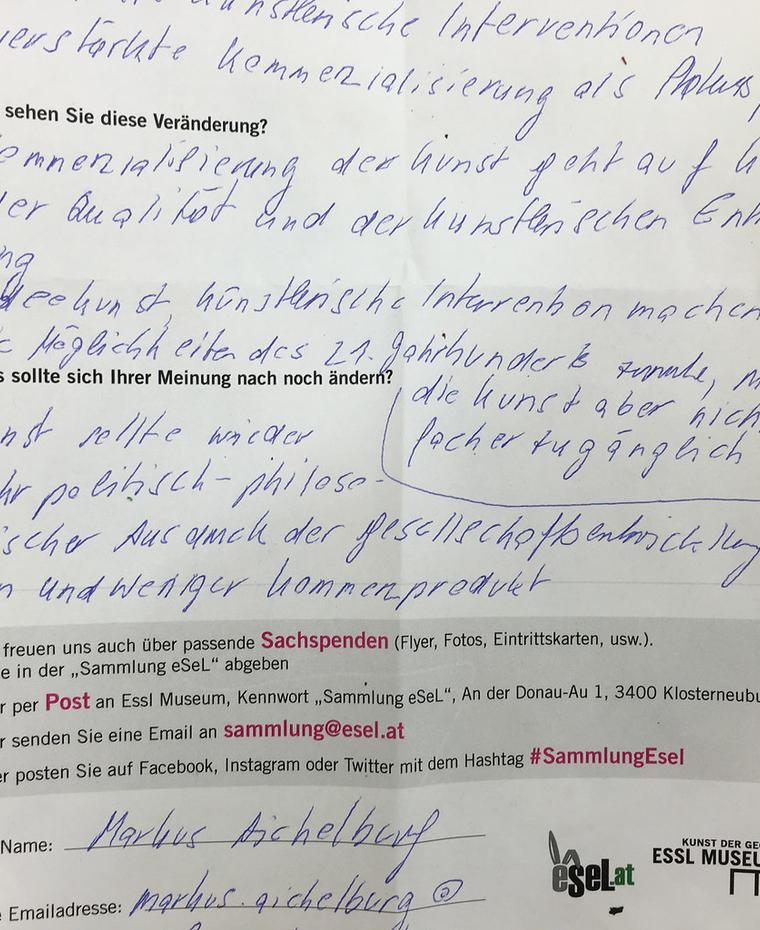 künstlerische Interventionen
verstärkte Kommerzialisierung als
sehen Sie diese Veränderung?
ommerzialisierung der Kunst geht auf K
der Qualität und der künstlerischen Ent
ng
deekunst, künstlerische Intervention machen
Möglichkeiten des 21. Jahrhunderts
s sollte sich Ihrer Meinung nach noch ändern?
die Kunst aber nich
facher zugänglich
nst sollte wieder
hr politisch-philoso-
ischer Ausdruck der Gesellschaftsentwicklung
n und weniger Kommerzprodukt
freuen uns auch über passende Sachspenden (Flyer, Fotos, Eintrittskarten, usw.).
e in der „Sammlung eSeL“ abgeben
r per Post an Essl Museum, Kennwort „Sammlung eSeL“, An der Donau-Au 1, 3400 Klosterneubu
r senden Sie eine Email an sammlung@esel.at
er posten Sie auf Facebook, Instagram oder Twitter mit dem Hashtag #SammlungEsel
Name: Markus Aichelburg
e Emailadresse: markus.aichelburg@
eSeL.at
KUNST DER GE
ESSL MUSEU